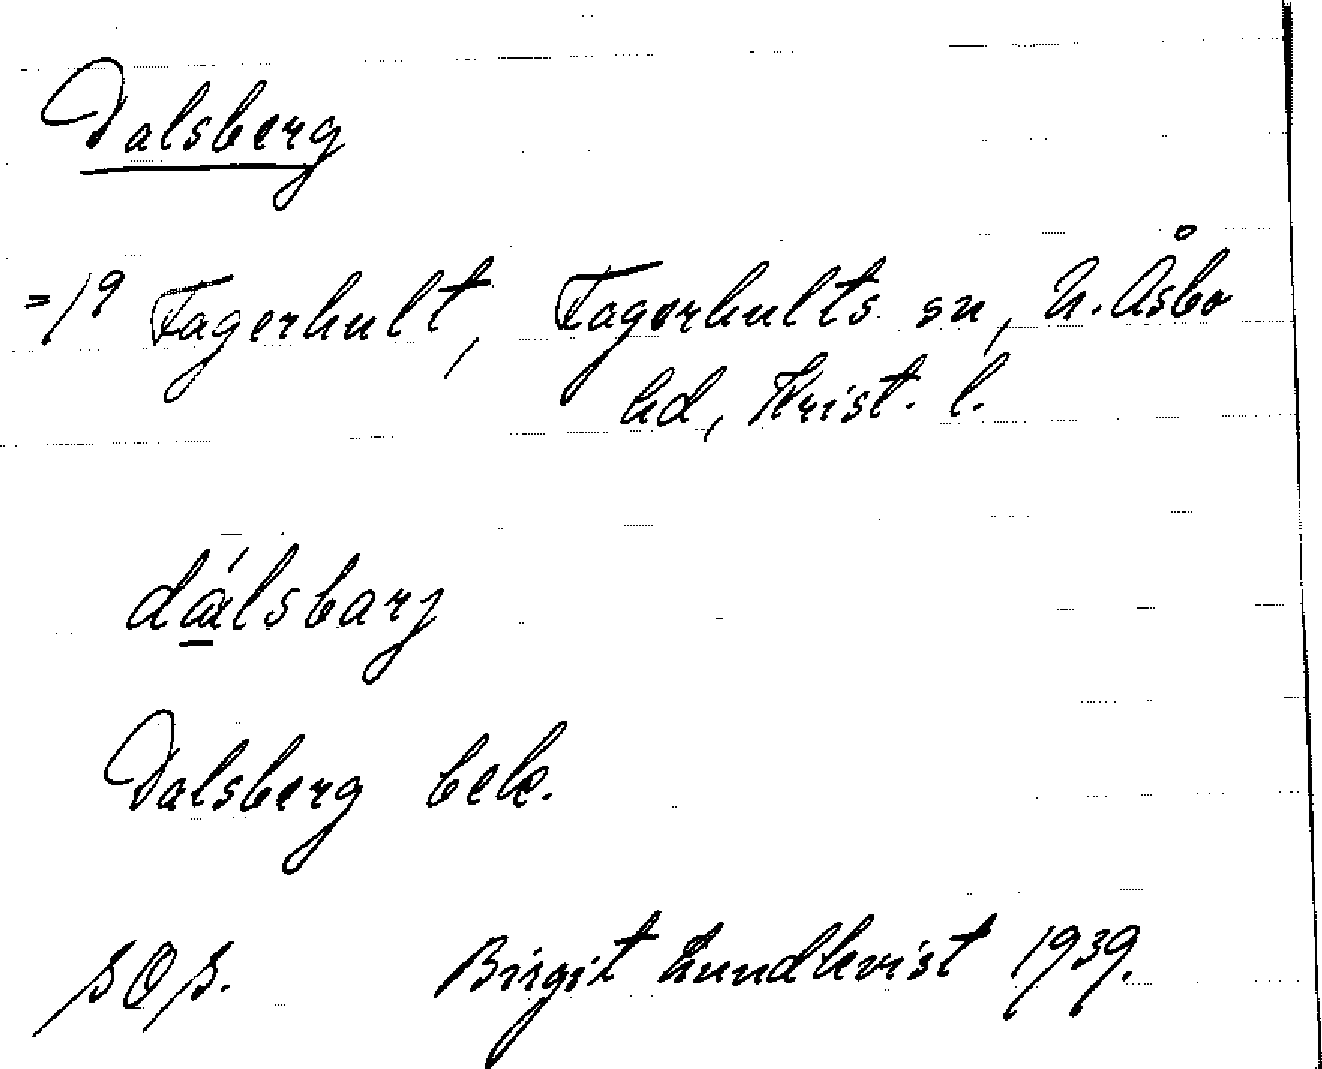 Dalsberg
=1⁹ Fagerhult, Fagerhults sn, N. Åsbo
hd, Krist. l.
dálsbarj
Dalsberg bek.
SOS. Birgit Lundkvist 1939.